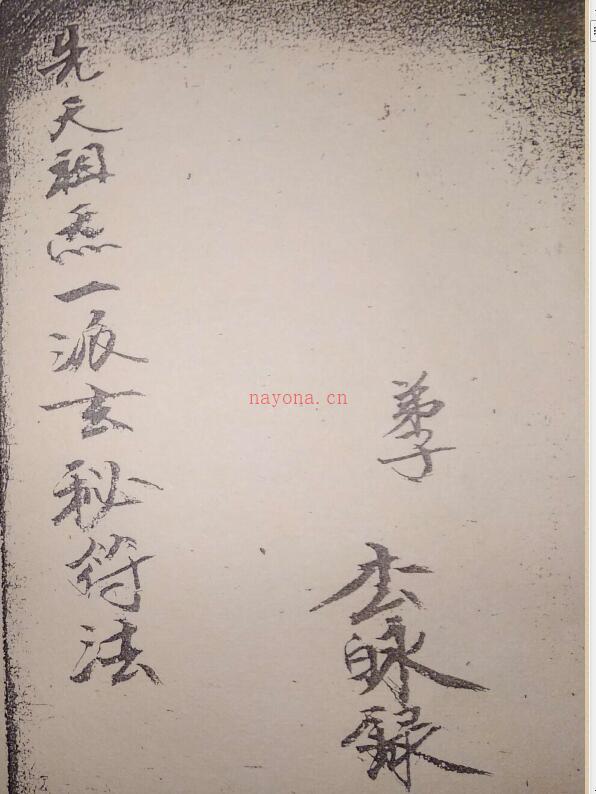 弟子 錄
先天祖炁一派玄秘符法
nayona.cn